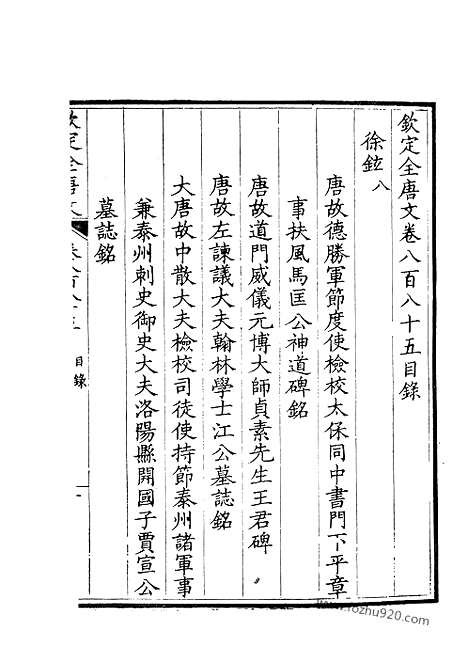 欽定全唐文卷八百八十五目錄
徐鉉 八
唐故德勝軍節度使檢校太保同中書門下平章
事扶風馬匡公神道碑銘
唐故道門威儀元博大師貞素先生王君碑
唐故左諫議大夫翰林學士江公墓誌銘
大唐故中散大夫檢校司徒使持節泰州諸軍事
兼泰州刺史御史大夫洛陽縣開國子賈宣公
墓誌銘
欽定全唐文 卷八百八十五 目錄 一
www.fozhu920.com